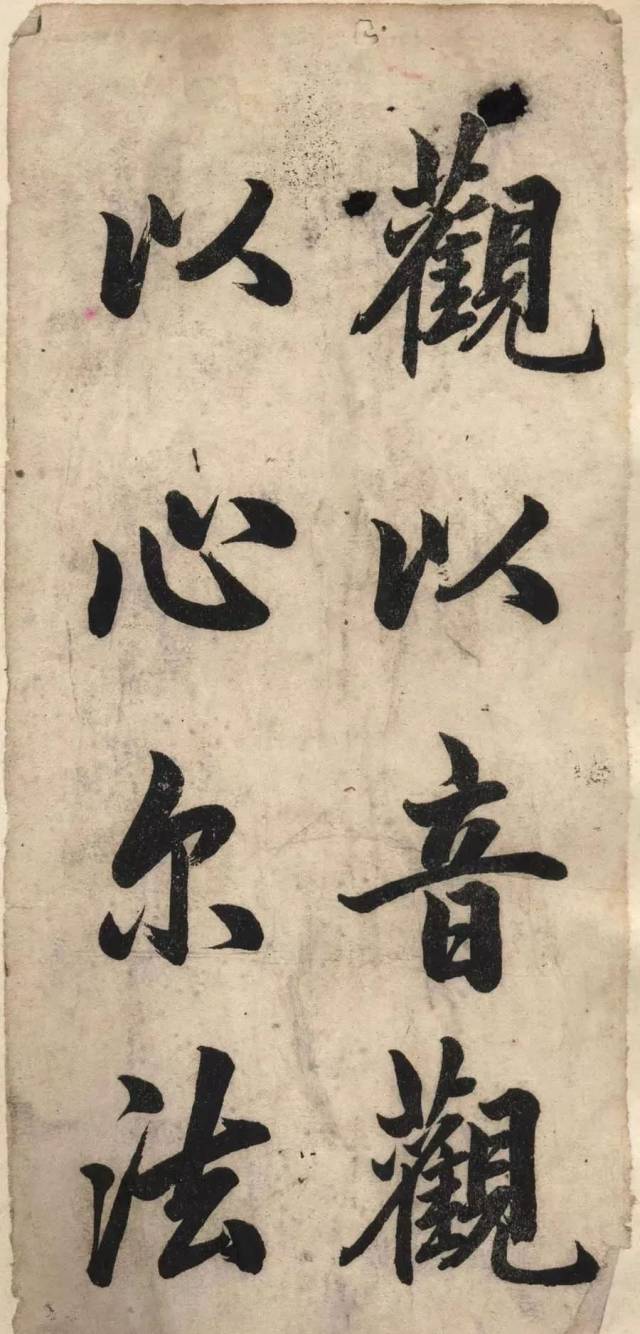 觀以音觀
以心尔法